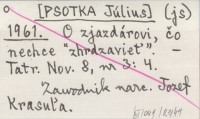 [PSOTKA Július] (js)
1961. O zjazdárovi, čo
nechce "zhrdzavieť". –
Tatr. Nov. 8, nr 3: 4.
Zawodnik narc. Jozef
Krasuľa.